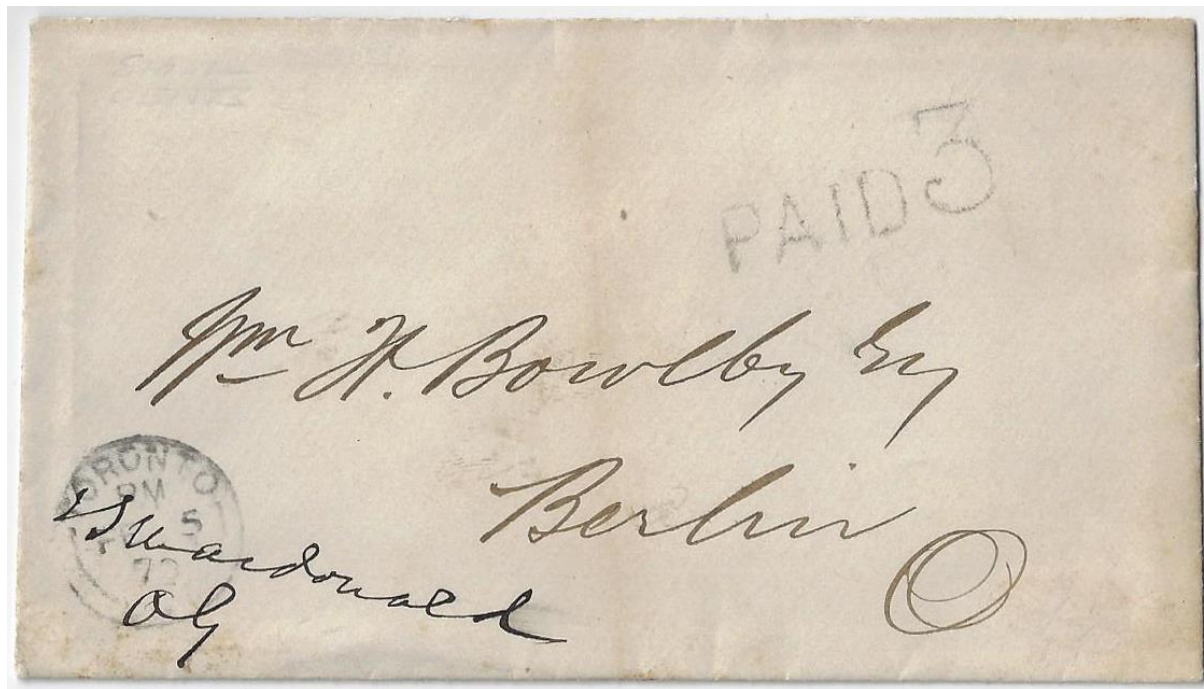 PAID 3
Wm H. Bowlby Esq
Berlin
TORONTO
PM
5
72
JSMacdonald
AG